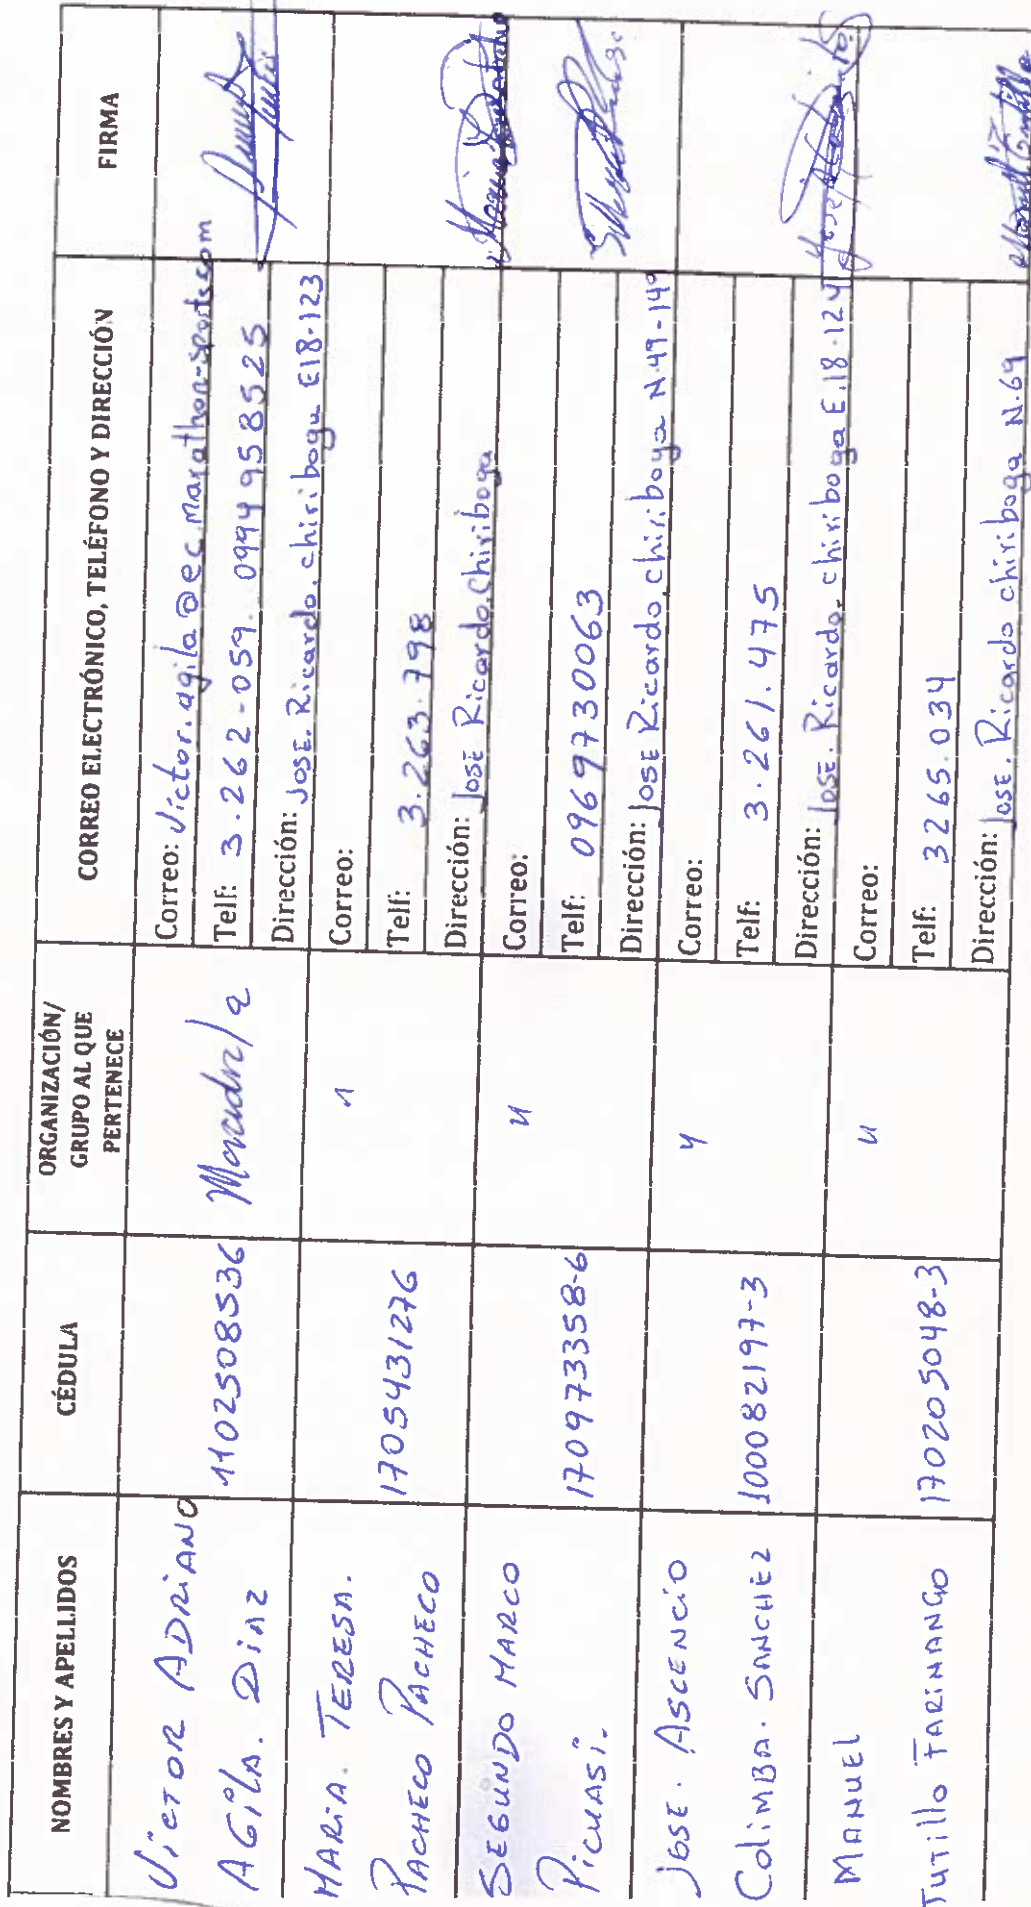 NOMBRES Y APELLIDOS
CÉDULA
ORGANIZACIÓN/
GRUPO AL QUE
PERTENECE
CORREO ELECTRÓNICO, TELÉFONO Y DIRECCIÓN
FIRMA
Victor ADRIANO
AGILA. DIAZ
1102508536
Correo: Victor.agila@ec.marathon-sports.com
Telf: 3.262-059. 0994958525
Dirección: JOSE. Ricardo. chiriboga E18-123
MARIA. TERESA.
PACHECO PACHECO
1705431276
Correo:
Telf: 3.263.798
Dirección: JOSE Ricardo.Chiriboga
SEGUNDO MARCO
PICUASI.
170973358-6
Correo:
Telf: 0969730063
Dirección: JOSE Ricardo.chiriboga N.49-149
JOSE. ASCENCIO
COLIMBA. SANCHEZ
100082197-3
Correo:
Telf: 3.261.475
Dirección: JOSE. Ricardo. chiriboga E.18.124
MANUEL
Tutillo FARINANGO
170205048-3
Correo:
Telf: 3265.034
Dirección: JOSE. Ricardo chiriboga N.69